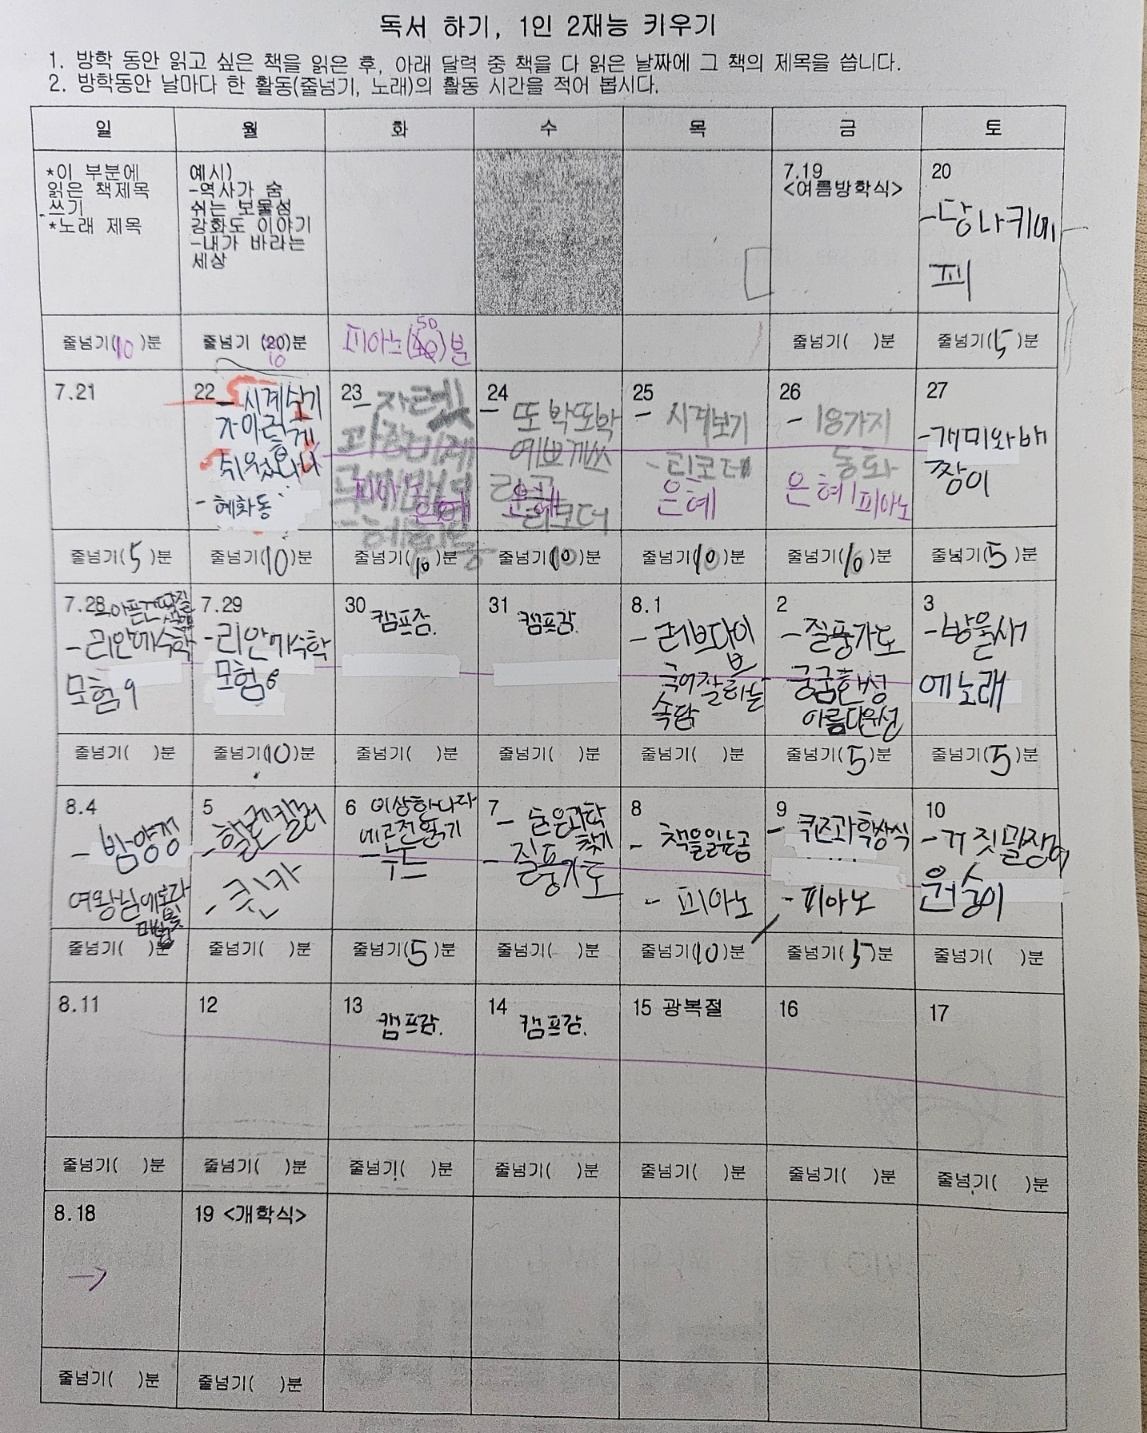 독서 하기, 1인 2재능 키우기
1. 방학 동안 읽고 싶은 책을 읽은 후, 아래 달력 중 책을 다 읽은 날짜에 그 책의 제목을 씁니다.
2. 방학동안 날마다 한 활동(줄넘기, 노래)의 활동 시간을 적어 봅시다.
일 월 화 수 목 금 토
*이 부분에
읽은 책제목
쓰기
*노래 제목
예시)
-역사가 숨
쉬는 보물섬
강화도 이야기
-내가 바라는
세상
7.19
<여름방학식>
20
-당나키에
피
줄넘기(10)분
줄넘기(20)분
10
피아노( )분
50
줄넘기( )분
줄넘기(5)분
7.21
22
- 시계삼기
가이렇게
쉬웠다니
- 혜화동
23
피아노
은혜
24
- 또박또박
예쁘게쓰
리코더
은혜
25
- 시계보기
- 리코더
은혜
26
- 18가지
동화
은혜 피아노
27
-개미와배
짱이
줄넘기(5)분
줄넘기(10)분
줄넘기(10)분
줄넘기(10)분
줄넘기(10)분
줄넘기(10)분
줄넘기(5)분
7.28
- 리안에수학
모험9
7.29
- 리안에수학
모험8
30
캠프잠.
31
캠프감.
8.1
- 러브다이브
국어잘하는
속담
2
- 질풍가도
궁금한성
아름다운성
3
-방울새
에노래
줄넘기( )분
줄넘기(10)분
줄넘기( )분
줄넘기( )분
줄넘기( )분
줄넘기(5)분
줄넘기(5)분
8.4
- 밤양갱
5
- 헬렌켈러
- 큰카
6 이상하나라
7
- 질풍가도
8
- 책을읽는곰
- 피아노
9
- 퀴즈과학상식
- 피아노
10
- 거짓말쟁이
원숭이
줄넘기( )분
줄넘기( )분
줄넘기(5)분
줄넘기( )분
줄넘기(10)분
줄넘기(5)분
줄넘기( )분
8.11
12
13
캠프감.
14
캠프감.
15 광복절
16
17
줄넘기( )분
줄넘기( )분
줄넘기( )분
줄넘기( )분
줄넘기( )분
줄넘기( )분
줄넘기( )분
8.18
→
19 <개학식>
줄넘기( )분
줄넘기( )분